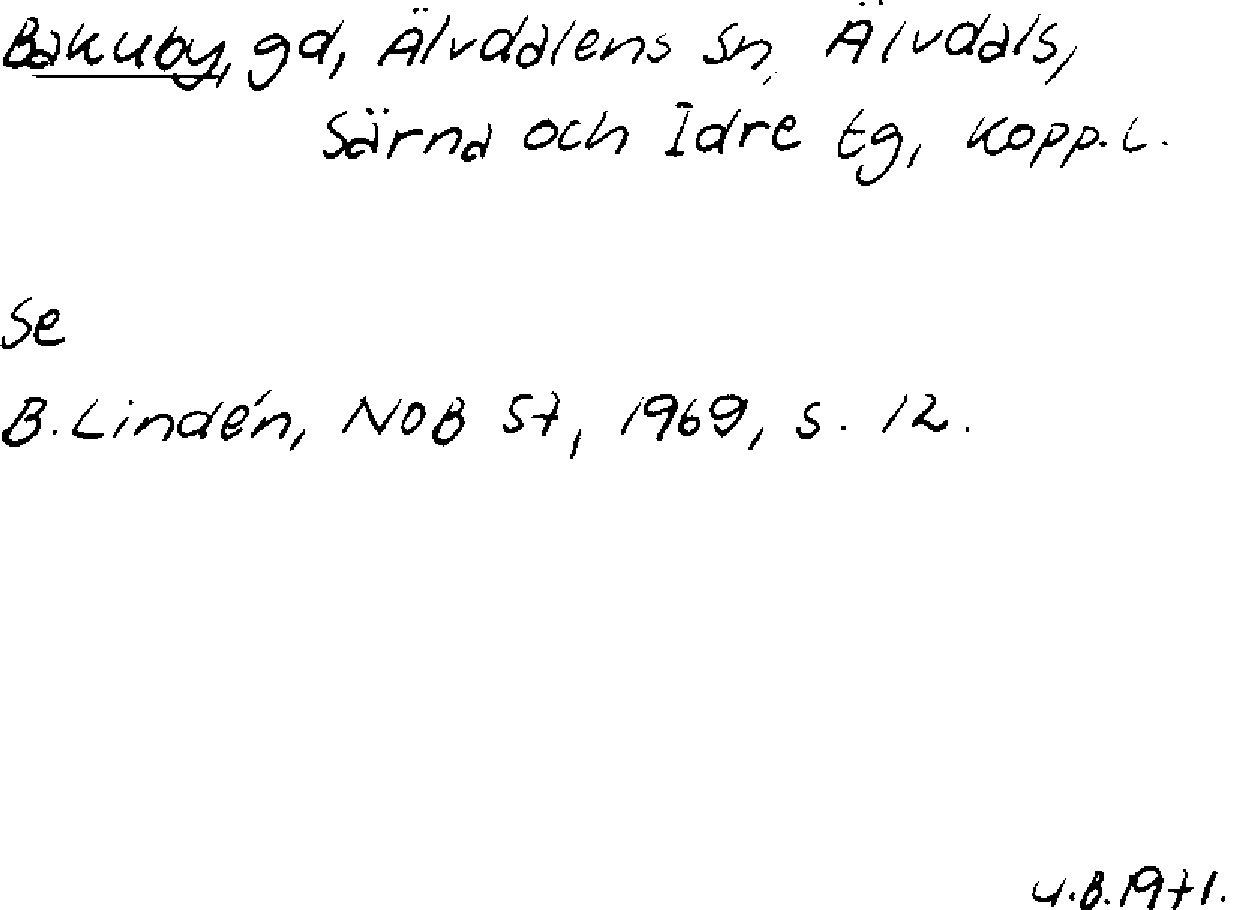 Bakuby, gd, Älvdalens sn, Älvdals,
Särna och Idre tg, Kopp. l.
Se
B. Lindén, NOB 57, 1969, s. 12.
U.B. 1971.